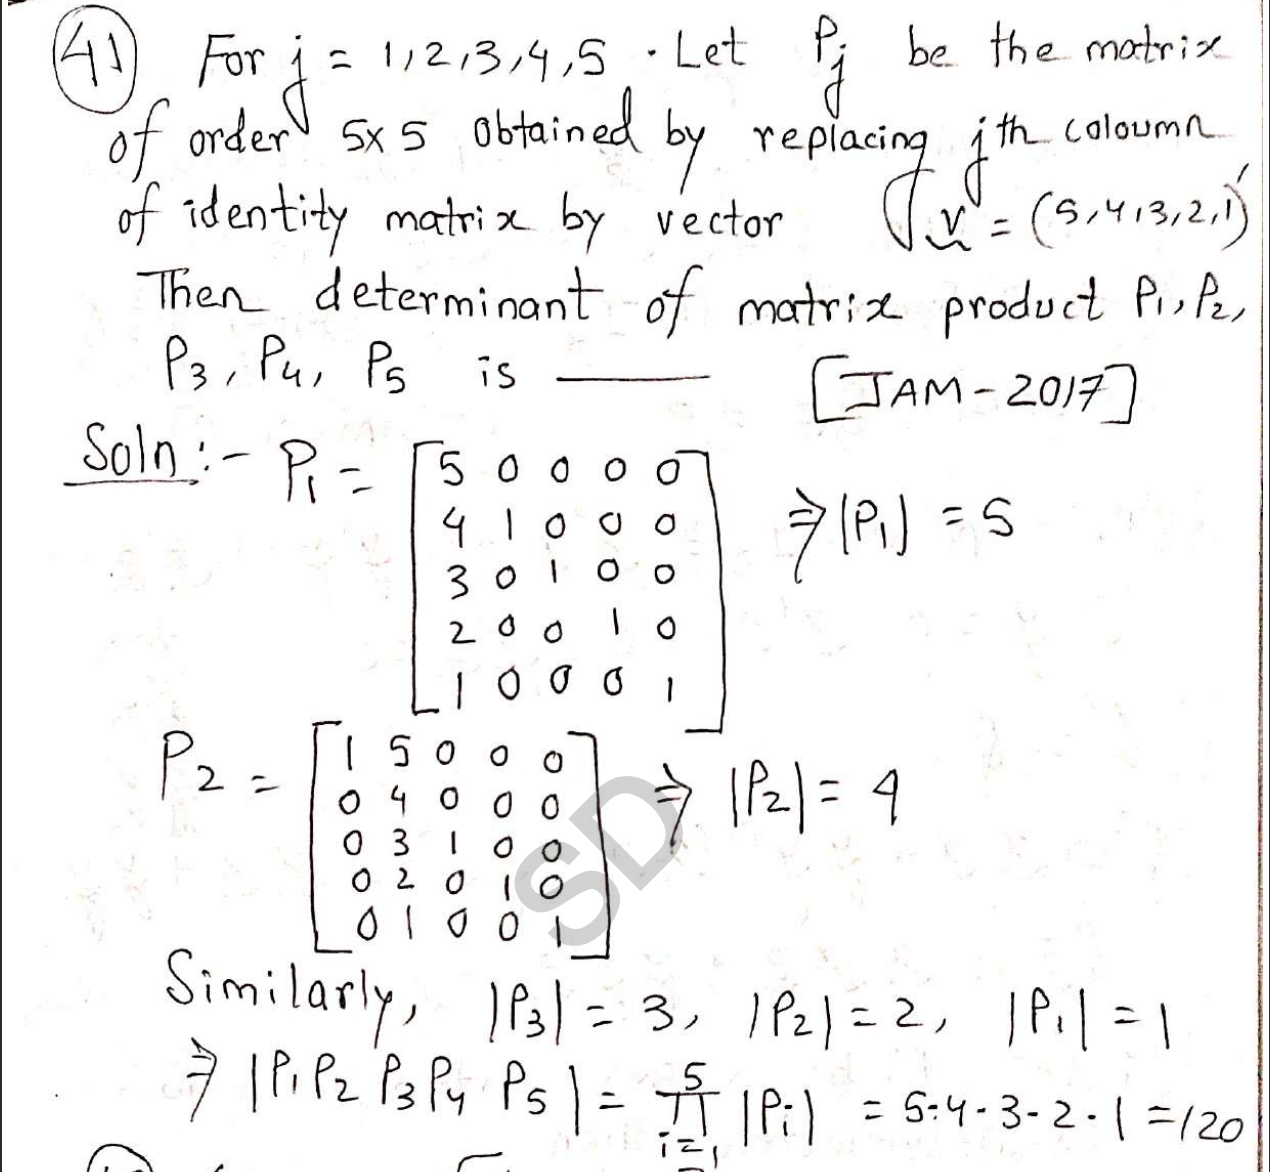 41) For j = 1,2,3,4,5 . Let Pj be the matrix
of order 5x5 obtained by replacing jth coloumn
of identity matrix by vector v = (5,4,3,2,1)'
Then determinant of matrix product P1, P2,
P3, P4, P5 is ______ [JAM-2017]
Soln :- P1 = [5 0 0 0 0
4 1 0 0 0
3 0 1 0 0
2 0 0 1 0
1 0 0 0 1] ⇒ |P1| = 5
P2 = [1 5 0 0 0
0 4 0 0 0
0 3 1 0 0
0 2 0 1 0
0 1 0 0 1] ⇒ |P2| = 4
SD
Similarly, |P3| = 3, |P2| = 2, |P1| = 1
⇒ |P1 P2 P3 P4 P5| = 5 π i=1 |Pi| = 5·4·3·2·1 = 120